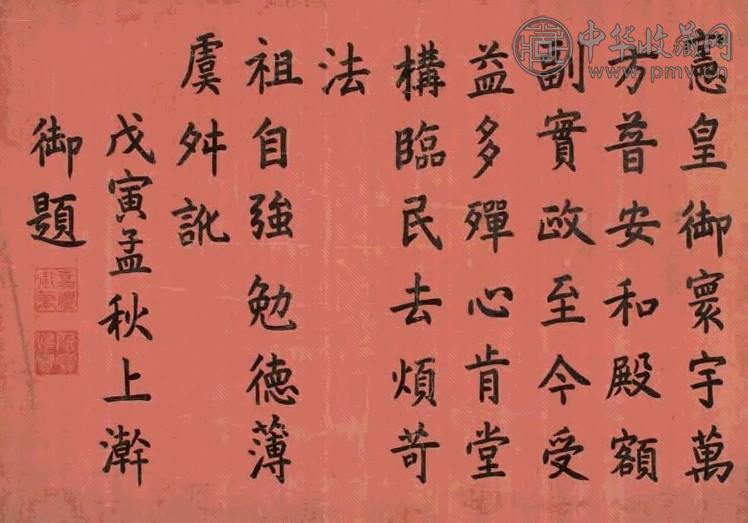 憲皇御寰宇萬
方普安和殿額
副實政至今受
益多殫心肯堂
構臨民去煩苛
法
祖自強勉德薄
虞舛訛
戊寅孟秋上澣
御題
中华收藏网